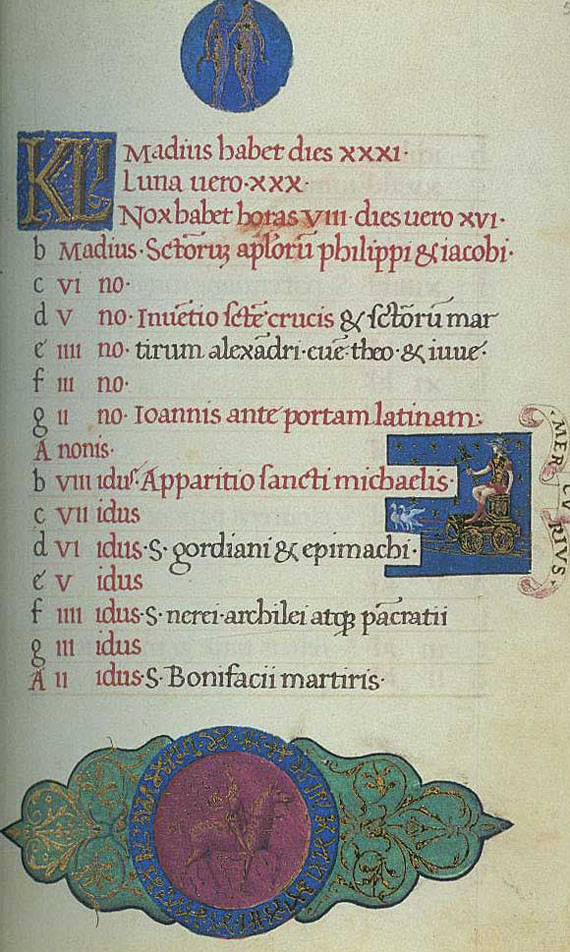 KL Madius habet dies xxxi·
Luna uero·xxx·
Nox habet horas viii· dies uero xvi·
b Madius· Sctoruꝫ aploru᷈ philippi & iacobi·
c vi no·
d v no· Inue᷈tio scte᷈ crucis & sctoru᷈ mar
e iiii no· tirum alexa᷈dri· eue᷈· theo· & iuue·
f iii no·
g ii no· Ioannis ante portam latinam:
A nonis·
b viii idus· Apparitio sancti michaelis·
c vii idus
d vi idus· S· gordiani & epimachi·
e v idus
f iiii idus· S· nerei· archilei atqꝫ pa᷈cratii
g iii idus
A ii idus· S· Bonifacii martiris·
MERCVRIVS·